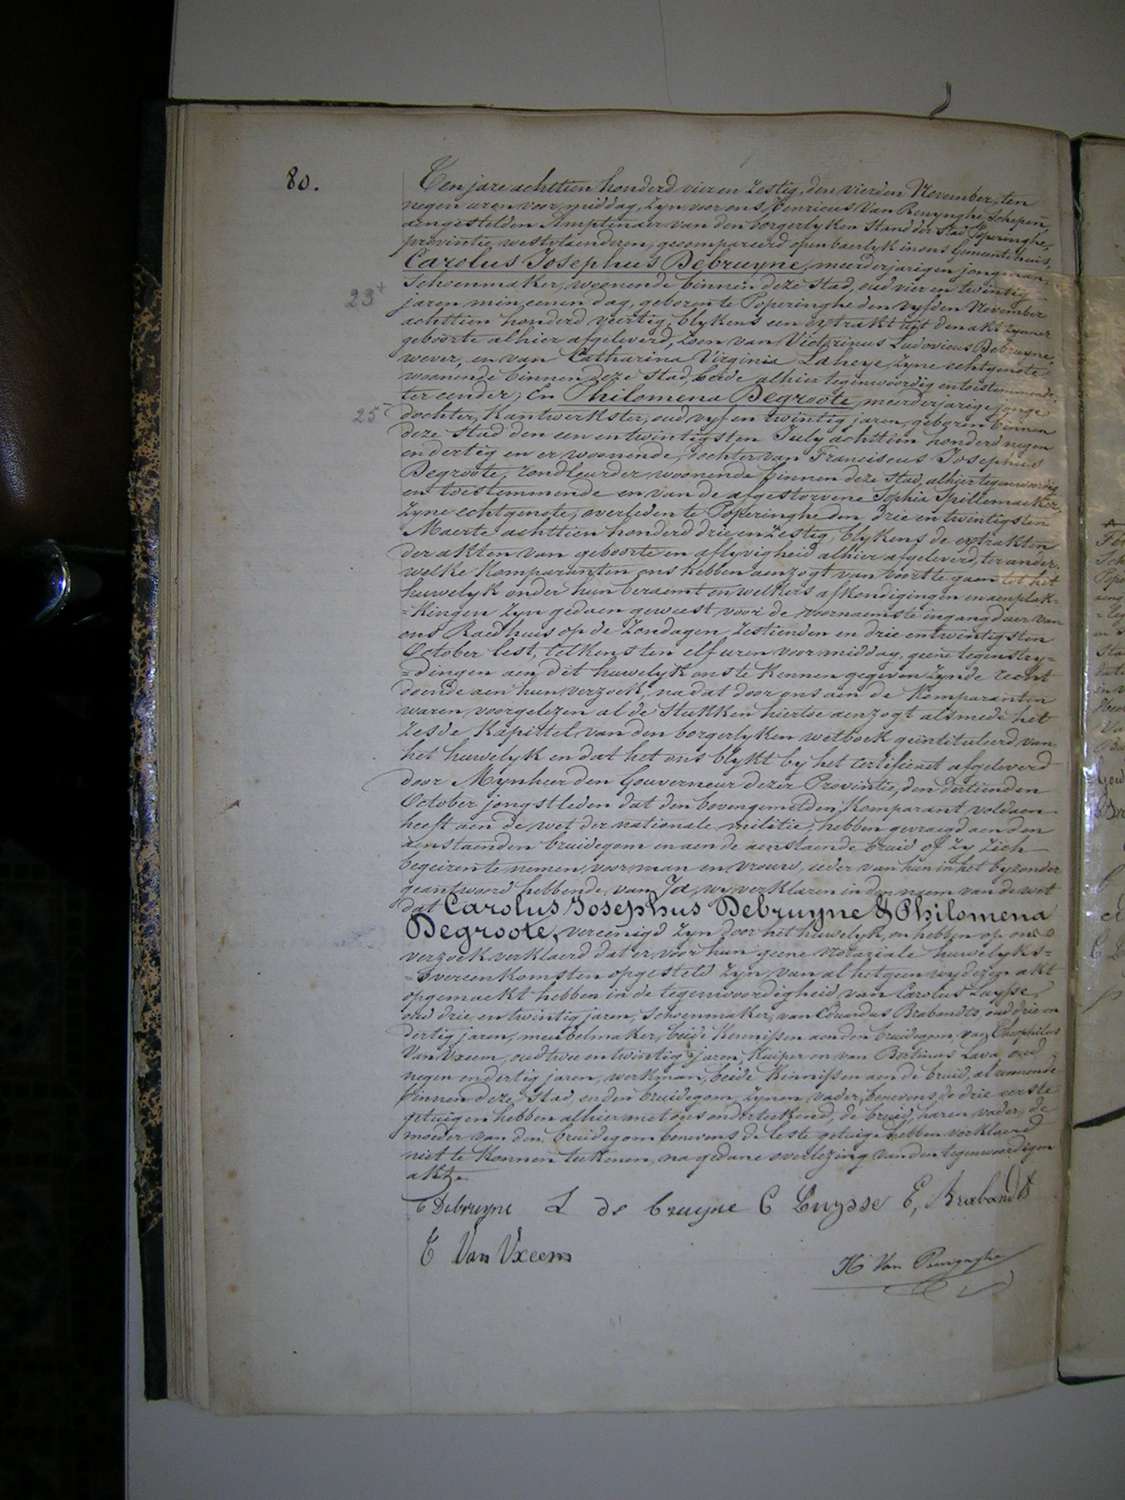 80.
Ten jare achttien honderd vier en zestig, den vierden November, ten
negen uren voor middag, zyn voor ons Henricus Van Renynghe, Schepen,
aengestelden Amptenaer van den borgerlyken Stand der Stad Poperinghe,
provintie Westvlaenderen, gecompareerd openbaerlyk in ons Gemeentehuis,
Carolus Josephus Debruyne, meerderjarigen jongman,
Schoenmaker, woonende binnen deze stad, oud vier en twintig
23+
jaren min eenen dag, geboren te Poperinghe den vyfden November
achttien honderd veertig, blykens een extrakt uyt den akt zynner
geboorte alhier afgeleverd, zoon van Ludovicus Debruyne,
wever, en van Catharina Virginia Laheye, zyne echtgenote
woonende binnen deze stad, beide alhier tegenwoordig en toestemmende,
ter eender; En Philomena Degroote, meerderjarige jonge
25-
dochter, Kantwerkster, oud vyf en twintig jaren, geboren binnen
deze stad den een en twintigsten July achttien honderd negen
en dertig en er woonende, dochter van Franciscus Josephus
Degroote, woonende binnen deze stad, alhier tegenwoordig
en toestemmende en van de afgestorvene Sophia Spillemaeker,
zyne echtgenote, overleden te Poperinghe den drie en twintigsten
Maerte achttien honderd drie en zestig, blykens de extrakten
der akten van geboorte en aflyvigheid alhier afgeleverd, ter ander,
welke Komparanten ons hebben aenzogt van voort te gaen tot het
huwelyk onder hun beraemt en welkers afkondigingen en aenplak-
=kingen zyn gedaen geweest voor de voornaemste ingangdeur van
ons Raedhuis op de zondagen zestienden en drie en twintigsten
October lest, telkens ten elf uren voor middag, geene tegenstry-
=dingen aen dit huwelyk ons te kennen gegeven zynde recht
doende aen hun verzoek, na dat door ons aen de Komparanten
waren voorgelezen al de Stukken hiertoe aenzogt alsmede het
zesde Kapittel van den borgerlyken wetboek geïntituleerd van
het huwelyk en dat het ons blykt by het certifikaet afgeleverd
door Mynheer den Gouverneur dezer Provintie, den dertienden
October jongstleden dat den bovengemelden Komparant voldaen
heeft aen de wet der nationale militie, hebben gevraegd aen den
aenstaenden bruidegom en aen de aenstaende bruid of zy zich
begeiren te nemen voor man en vrouw, ieder van hun in het byzonder
geantwoord hebbende, van Ja, wy verklaren in den naem van de wet
dat Carolus Josephus Debruyne & Philomena
Degroote, vereenigd zyn door het huwelyk, en hebben op ons
verzoek verklaerd dat er voor hun geene Notariale huwelyks-
=overeenkomsten opgesteld zyn, van al het geen wy dezen akt
opgemaekt hebben in de tegenwoordigheid van Carolus Luysse,
oud drie en twintig jaren, Schoenmaker, van Eduardus Brabandts, oud drie en
dertig jaren, meubelmaker, beide Kennissen aen den bruidegom, van Theophilus
Van Uxeem, oud twee en twintig jaren, Kuiper en van Bertinus Lava, oud
negen en dertig jaren, werkman, beide Kennissen aen de bruid, al woonende
binnen deze Stad, en den bruidegom, zynen vader, benevens de drie eerste
getuigen hebben alhier met ons onderteekend, de bruid, haren vader, de
moeder van den bruidegom benevens de leste getuige hebben verklaerd
niet te konnen teekenen, na gedane overlezing van den tegenwoordigen
akt.
C Debruyne L de bruyne C Luysse E, Brabandts
T Van Uxeem H Van Renynghe